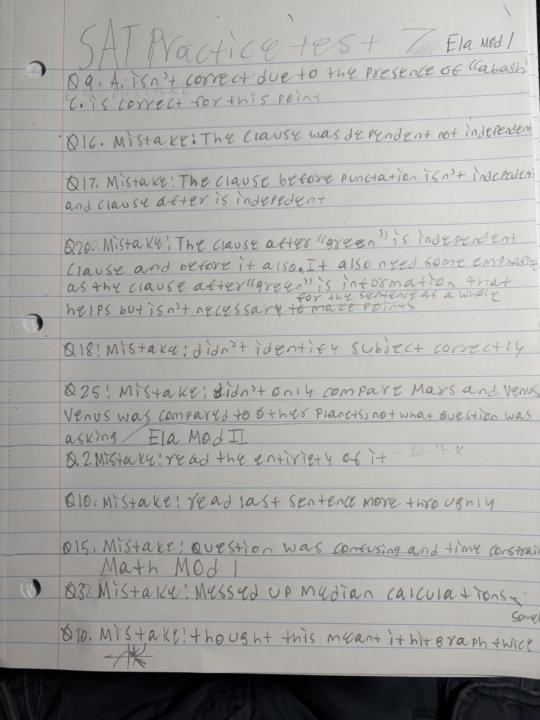 SAT Practice test 7 Ela Mod 1
Q9. A. isn't correct due to the presence of "abash"
C. is correct for this point
Q16. Mistake: The Clause was dependent not independent
Q17. Mistake: The clause before punctation isn't independent
and clause after is indepedent
Q20. Mistake: The clause after "green" is independent
clause and before it also. It also need some emphasis
as the clause after "green" is information that
for the sentence as a whole
helps but isn't necessary to make points
Q18: Mistake: didn't identify subject correctly
Q25: Mistake: didn't only compare Mars and Venus
Venus was compared to other planets, not what question was
asking Ela Mod II
Q.2 Mistake: read the entiriety of it
Q10. Mistake: read last sentence more throughly
Q15. Mistake: Question was confusing and time constrain
Math Mod 1
Q3. Mistake: Messed up median calculations
some
Q10. Mistake: thought this meant it hit graph twice